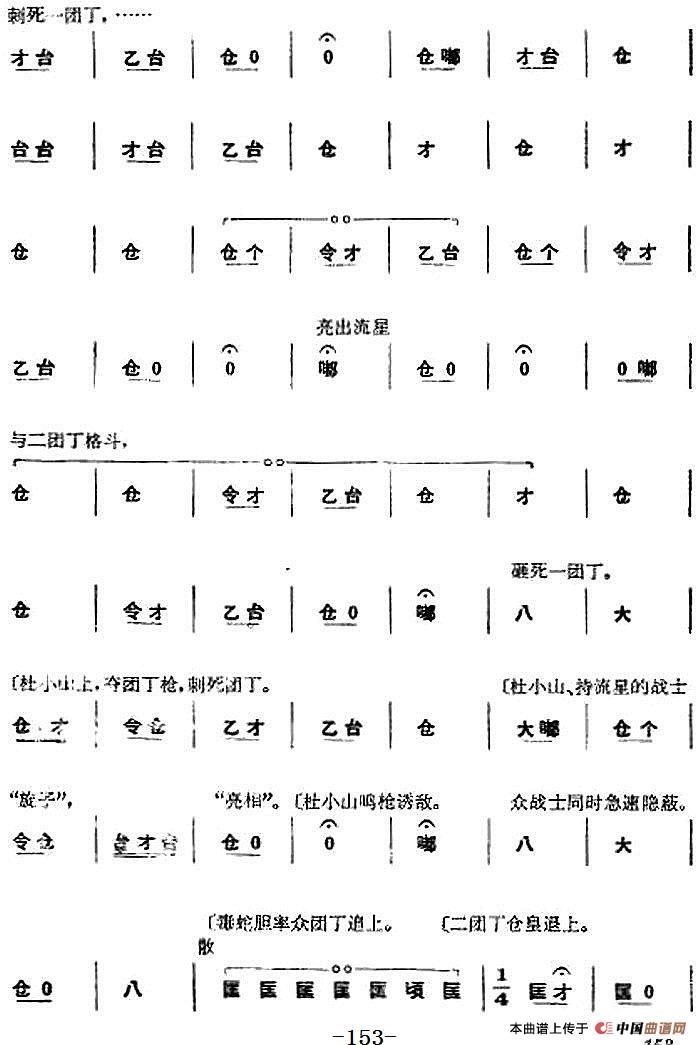 刺死一团丁，……
才台 | 乙台 | 仓0 | 0 | 仓嘟 | 才台 | 仓 |
台台 | 才台 | 乙台 | 仓 | 才 | 仓 | 才 |
仓 | 仓 | 仓个 | 令才 | 乙台 | 仓个 | 令才 |
亮出流星
乙台 | 仓0 | 0 | 嘟 | 仓0 | 0 | 0嘟 |
与二团丁格斗，
仓 | 仓 | 令才 | 乙台 | 仓 | 才 | 仓 |
砸死一团丁。
仓 | 令才 | 乙台 | 仓0 | 嘟 | 八 | 大 |
〔杜小山上，夺团丁枪，刺死团丁。 〔杜小山、持流星的战士
仓·才 | 令仓 | 乙才 | 乙台 | 仓 | 大嘟 | 仓个 |
“旋子”， “亮相”。〔杜小山鸣枪诱敌。 众战士同时急速隐蔽。
令仓 | 台才台 | 仓0 | 0 | 嘟 | 八 | 大 |
〔毒蛇胆率众团丁追上。 〔二团丁仓皇退上。
散
仓0 | 八 | 匡 匡 匡 匡 匡 顷 匡 | 1/4 匡才 | 匡0 |
本曲谱上传于 中国曲谱网
-153-